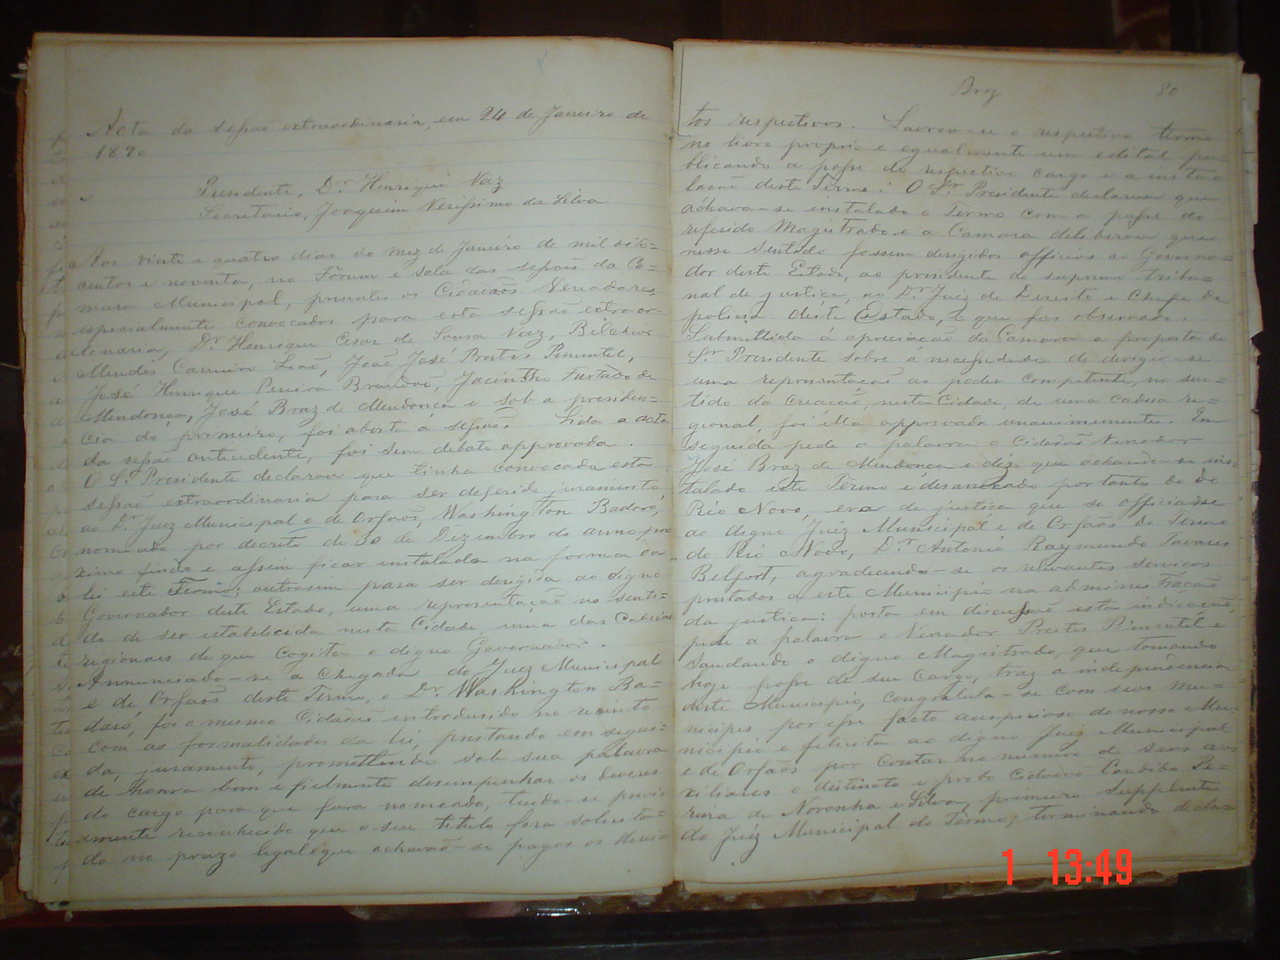 Acta da sessão extraordinaria, em 24 de Janeiro de
1890
Presidente, Dr. Henrique Vaz
Secretario, Joaquim Verissimo da Silva
Aos vinte e quatro dias do mez de Janeiro de mil oito=
centos e noventa, no Fôrum e sala das sessões da Ca=
mara Municipal, presentes os Cidadãos Vereadores,
especialmente convocados para esta sessão extraor-
dinaria, Dr. Henrique Cesar de Sousa Vaz, Belchior
Mendes Carneiro Leão, João José Prestes Pimentel,
José Henrique Pereira Brandão, Jacintho Furtado de
Mendonça, José Braz de Mendonça e sob a presiden-
cia do primeiro, foi aberta á sessão. Lida a acta
da sessão antecedente, foi sem debate approvada.
O Sr. Presidente declarou que tinha convocada esta
sessão extraordinaria para ser deferido juramento
ao Dr. Juiz Municipal e de Orfãos, Washington Badaró,
nomeado por decreto de 30 de Dezembro do anno pro
ximo findo e assim ficar installado na forma da
lei este Termo; outrosim para ser dirigida ao digno
Governador deste Estado, uma representação no senti-
do de ser estabelecida nesta Cidade, uma das Cadeias
regionaes de que cogita o digno Governador.
Annunciado-se a chegada do Juiz Municipal
e de Orfãos deste Termo, o Dr. Washington Ba=
daró, foi o mesmo Cidadão introdusido no recinto
com as formalidades da lei, prestando em segui=
da, juramento, promettendo sob sua palavra
de honra bem e fielmente desempenhar os deveres
do cargo para que fora nomeado, tendo-se previa
mente reconhecido que o seu titulo fora solicita=
do no prazo legal e que achavão-se pagos os direi
Braz 80
tos respectivos. Lavrou-se o respectivo termo
no livro proprio e egualmente um edital pu=
blicando a posse do respectivo cargo e a insta
lação deste Termo. O Sr. Presidente declarou que
achava-se instalado o Termo com a posse do
referido Magistrado e a Camara deliberou que
nesse sentido fossem dirigidos officios ao Governa=
dor deste Estado, ao presidente do supremo tribu=
nal de justiça, ao Dr. Juiz de Direito e Chefe de
policia deste Estado, o que foi observado.
Submettida á apreciação da Camara a proposta do
Sr. Presidente sobre a necessidade de dirigir-se
uma representação ao poder competente, no sen=
tido da creação, nesta Cidade, de uma cadeia re=
gional, foi ella approvada unanimemente. Em
seguida pede a palavra o Cidadão Vereador
José Braz de Mendonça e diz que achando-se ins
talado este Termo e desannexado portanto do do
Rio Novo, era de justiça que se officiasse
ao digno Juiz Municipal e de Orfãos do Termo
do Rio Novo, Dr. Antonio Raymundo Tavares
Belfort, agradecendo-se os relevantes serviços
prestados a este Municipio na administração
da justiça: posta em discussão esta indicação,
pede a palavra o Vereador Prestes Pimentel e
saudando o digno Magistrado, que tomando
hoje posse de seu cargo, traz a independencia
deste Municipio, congratula-se com seus mu=
nicipes por esse facto auspicioso do nosso Mu=
nicipio e felicita ao digno Juiz Municipal
e de Orfãos por contar no numero de seus au
xiliares o distincto e probo Cidadão Candido Le=
rura de Noronha e Silva, primeiro supplente
do Juiz Municipal do Termo, terminando declara
1 13:49